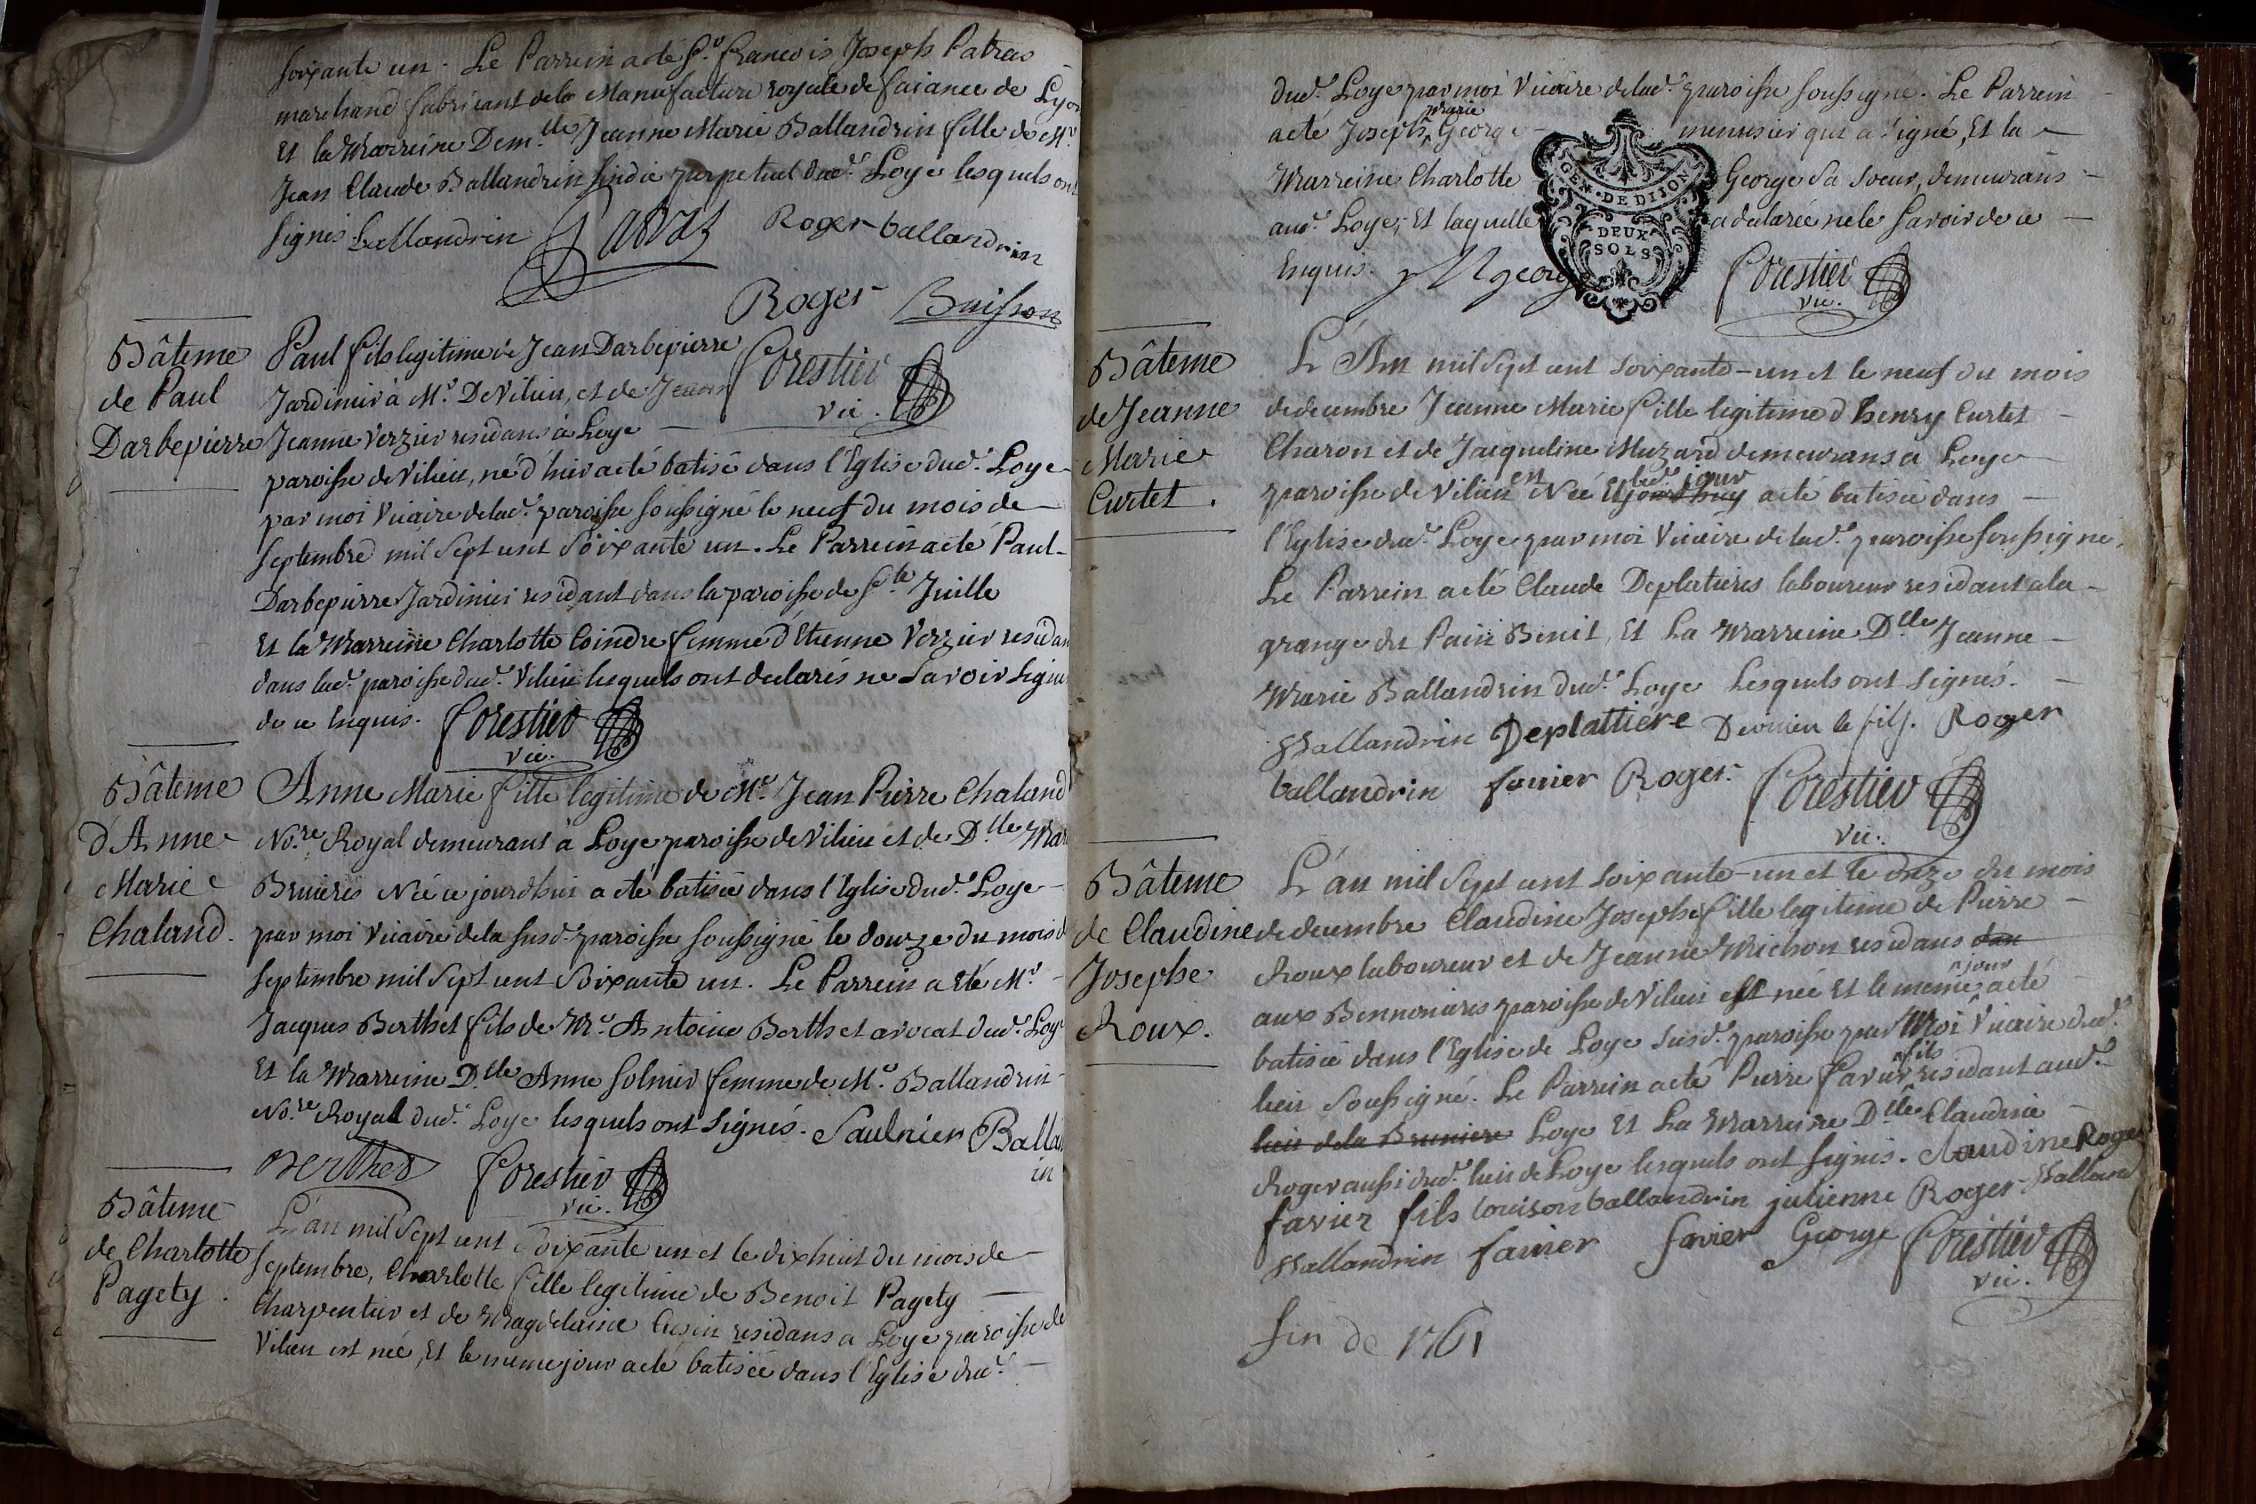 soixante un. Le Parrein a eté Sr. francois Joseph Patras
marchand fabricant de la Manufacture royale de faiance de Lyon
Et la Marreine Dem.lle Jeanne Marie Ballandrin fille de Mr.
Jean Claude Ballandrin sindic perpetuel dud. Loye lesquels ont
signés Ballandrin Patras Roger ballandrin
Roger Buisson
Bâteme
de Paul
Darbepierre
Paul fils legitime de Jean Darbepierre
Jardinier à Mr. De Vilieu, et de Jeann
Forestier
vic.
Jeanne Verzier residans à Loye
paroisse de Vilieu, né d'hier a eté batisé dans l'Eglise dud. Loye
par moi Vicaire de lad. paroisse soussigné le neuf du mois de
septembre mil sept cent soixante un. Le Parrein a eté Paul
Darbepierre Jardinier residant dans la paroisse de Ste. Juille
Et la Marreine Charlotte Coindre femme d'Etienne Verzier residan
dans lad. paroisse dud. Vilieu lesquels ont declarés ne savoir signer
de ce Enquis. Forestier
vic.
Bâteme
d'Anne
Marie
Chaland.
Anne Marie fille legitime de Me. Jean Pierre Chaland
No.re Royal demeurant à Loye paroisse de Vilieu et de D.lle Mar
Bruieres Née ce jourdhui a eté batisée dans l'Eglise dud. Loye
par moi Vicaire de la susd. paroisse soussigné le douze du mois d
septembre mil sept cent soixante un. Le Parrein a Eté Mr.
Jacques Berthet fils de Me. Antoine Berthet avocat dud. Loye
Et la Marreine D.lle Anne Solnier femme de Me. Ballandrin
No.re Royal dud. Loye lesquels ont signés. Saulnier Balla
in
Berthet Forestier
vic.
Bâteme
de Charlotte
Pagety.
L'an mil sept cent soixante un et le dixhuit du mois de
septembre, Charlotte fille legitime de Benoit Pagety
Charpentier et de Magdelaine Cusin residans a Loye paroisse de
Vilieu est née, Et le meme jour a eté batisée dans l'Eglise dud.
dud. Loye par moi Vicaire de lad. paroisse soussigné. Le Parrein
a eté Joseph Marie George menusier qui a signé, Et la
Marreine Charlotte George sa soeur, demeurans
aud. Loye, Et laquelle a declarée ne le savoir de ce
Enquis. JM george Forestier
vic.
GEN. DE DIJON
DEUX
SOLS
Bâteme
de Jeanne
Marie
Curtet.
L'An mil sept cent soixante-un et le neuf du mois
de decembre Jeanne Marie fille legitime d'henry Curtet
Charon et de Jacqueline Muzard demeurans a Loye
paroisse de Vilieu est Née Et led. jour a eté batisée dans
l'Eglise dud. Loye par moi Vicaire de lad. paroisse soussigné.
Le Parrein a eté Claude Deplatieres laboureur residant a la
grange du Pain Benit, Et La Marreine D.lle Jeanne
Marie Ballandrin dud. Loye Lesquels ont signés.
Ballandrin Deplattiére Dervieu le fils. Roger
ballandrin favier Roger Forestier
vic.
Bâteme
de Claudine
Josephe
Roux.
L'an mil sept cent soixante-un et le onze du mois
de decembre Claudine Josephe fille legitime de Pierre
Roux laboureur et de Jeanne Michon residans dan
aux Bennonieres paroisse de Vilieu est née Et le même jour a eté
batisée dans l'Eglise de Loye susd. paroisse par Moi Vicaire dud.
lieu soussigné. Le Parrein a eté Pierre Favier fils residant aud.
lieu de la Bruniere Loye Et La Marreine D.lle Claudine
Roger aussi dud. lieu de Loye lesquels ont signés. Claudine Roger
favier fils louison ballandrin julienne Roger Balland
Ballandrin favier favier George Forestier
vic.
fin de 1761